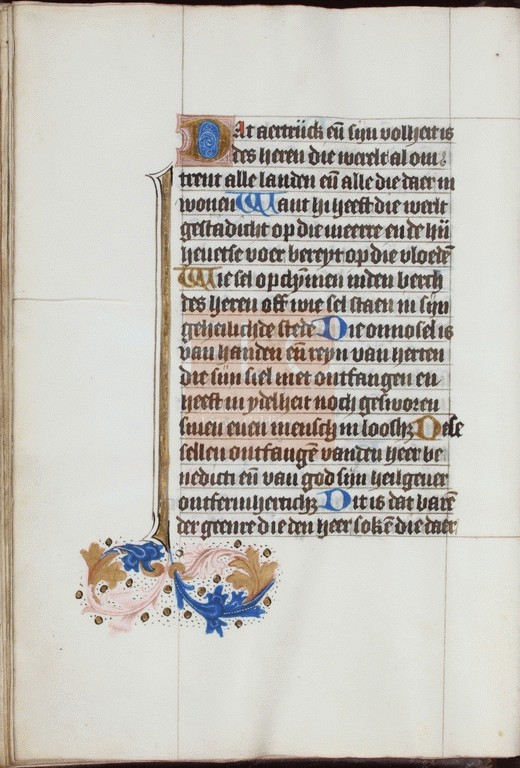 DAt aertrijck eñ sijn volheit is
des heren die werelt al om
trent alle landen eñ alle die daer in
wonen Want hi heeft die werlt
gestadicht op die meerre ende hij
heuetse voer bereyt op die vloedẽ
Wie sel opclymmen inden berch
des heren off wie sel staen in sijn
geheilichde stede Die onnosel is
van handen eñ reyn van herten
die sijn siel niet ontfangen en
heeft in ydelheit noch gesworen
sinen euen mensch in loosh; Dese
sellen ontfangẽ vanden heer be
nedicti eñ van god sijn heilgeuer
ontfermherich; Dit is dat barẽ
der geenre die den heer sokẽ die daer